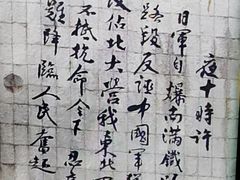 夜十時許
日軍自爆南滿鐵
路段反誣中國軍
攻佔北大營我東北
不抵抗命令下忍
題降臨人民奮起